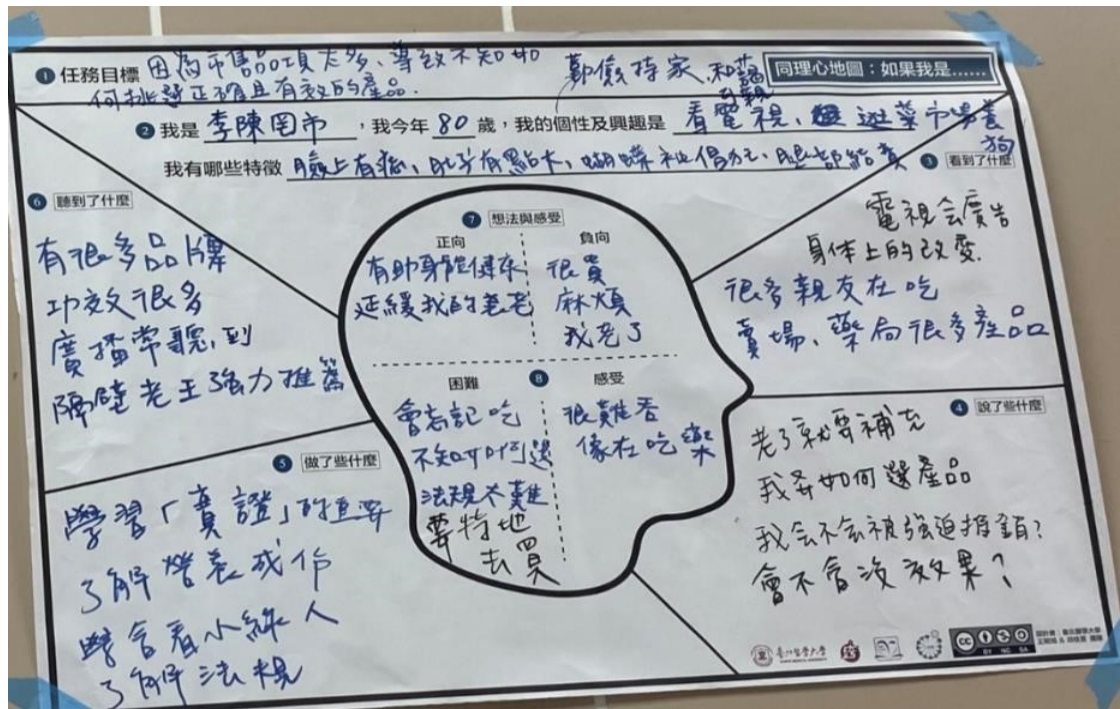 ① 任務目標 因為市售品項太多、導致不知如
何挑選正確且有效的產品.
勤儉持家、和藹
可親
同理心地圖：如果我是……
② 我是 李陳罔市，我今年 80 歲，我的個性及興趣是 看電視、逛菜市場養
狗
我有哪些特徵 臉上有痣、肚子有點大、蝴蝶袖
③ 看到了什麼
電視会廣告
身体上的改变.
很多親友在吃
賣場、藥局很多產品
④ 說了些什麼
老了就要補充
我要如何選產品
我会不会被強迫推銷?
會不會沒效果?
⑤ 做了些什麼
學習「實證」的重要
了解營養成份
學會看小綠人
了解法規
⑥ 聽到了什麼
有很多品牌
功效很多
廣播常聽到
隔壁老王強力推薦
⑦ 想法與感受
正向
有助身體健康
延緩我的衰老
負向
很貴
麻煩
我老了
⑧
困難
會忘記吃
不知如何選
法規太難
要特地
去買
感受
很難吞
像在吃藥
臺北醫學大學
TAIPEI MEDICAL UNIVERSITY
CC BY NC SA